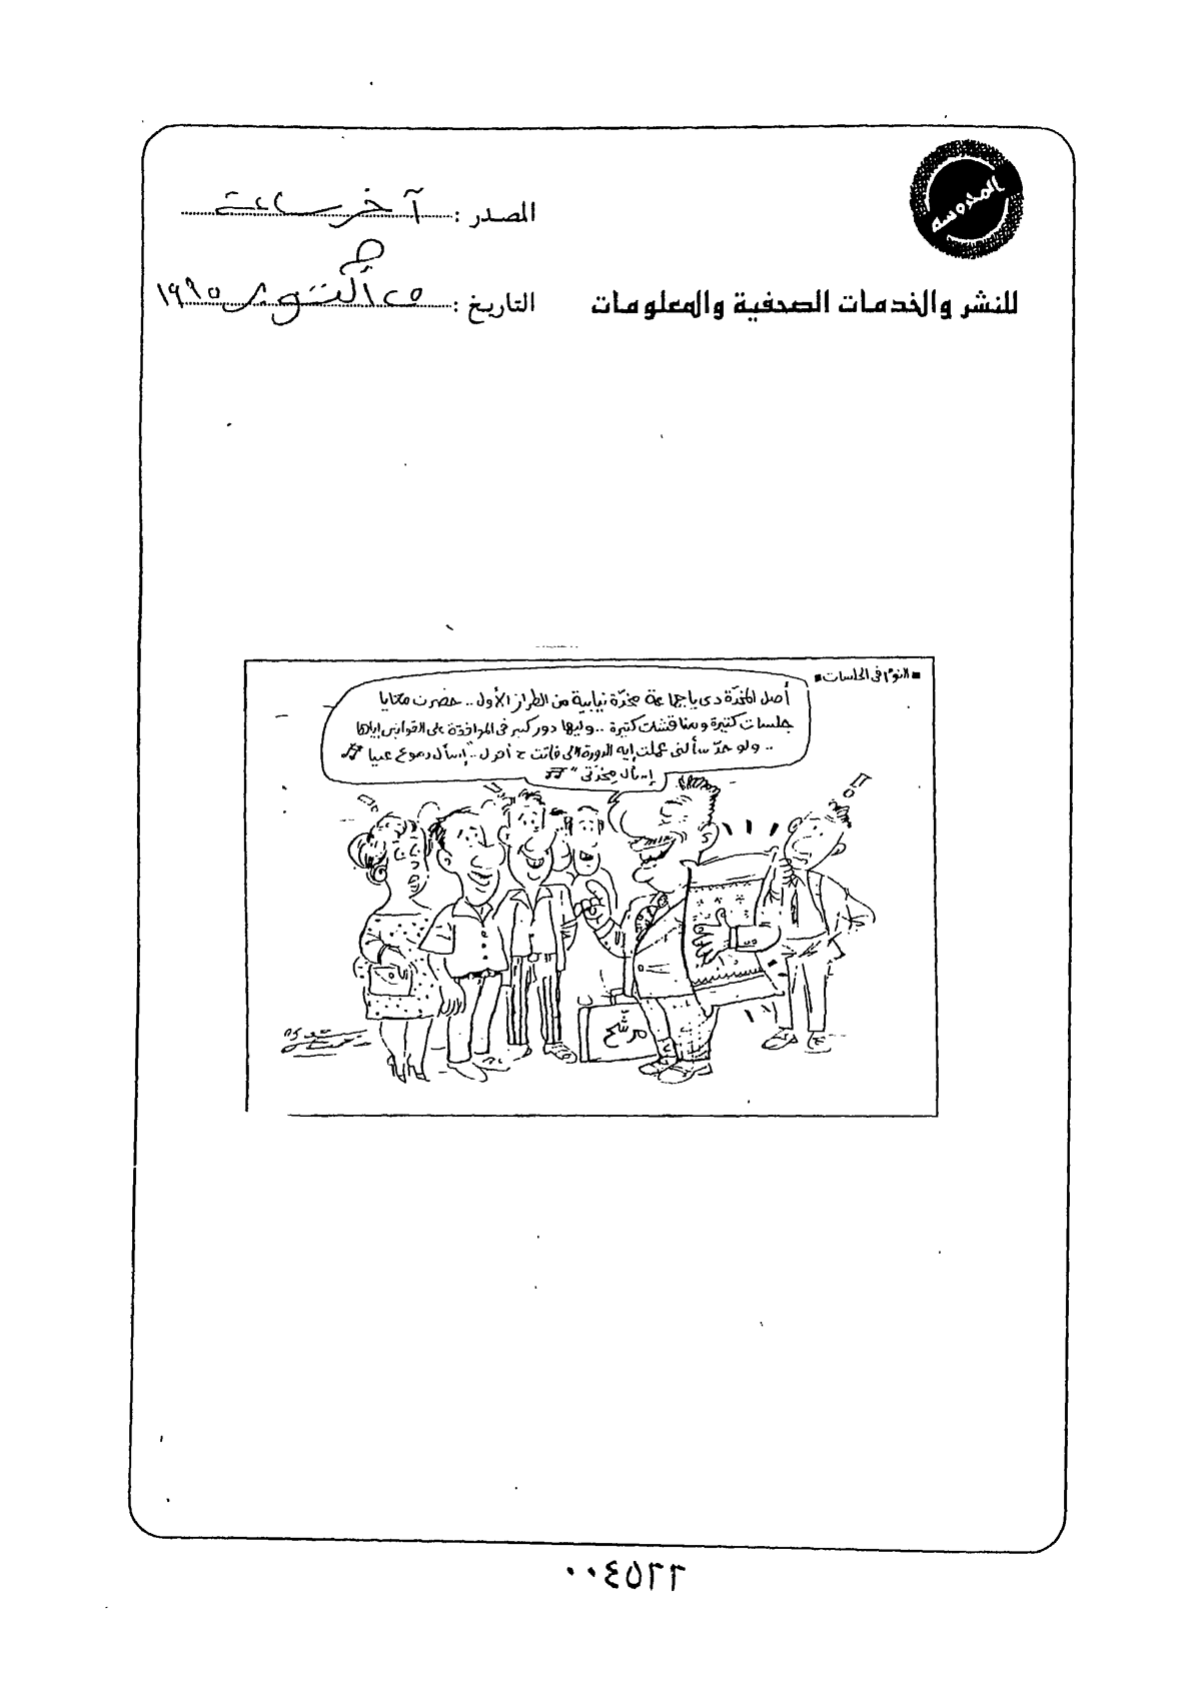 المحروسة
المصدر : آخر ساعة
للنشر والخدمات الصحفية والمعلومات
التاريخ : ٢٥ أكتوبر ١٩٩٥
النوم فى الجلسات
أصل المخدّة دى ياجماعة مخدّة نيابية من الطراز الأول .. حضرت معايا
جلسات كتيرة ومناقشات كتيرة .. وليها دور كبير فى الموافقة على القوانين إياها
.. ولو حدّ سألنى عملت إيه الدورة اللى فاتت ح أقول .. "إسأل دموع عنيا
إسأل مخدّتى"
مرشح
٠٠٤٥٢٦